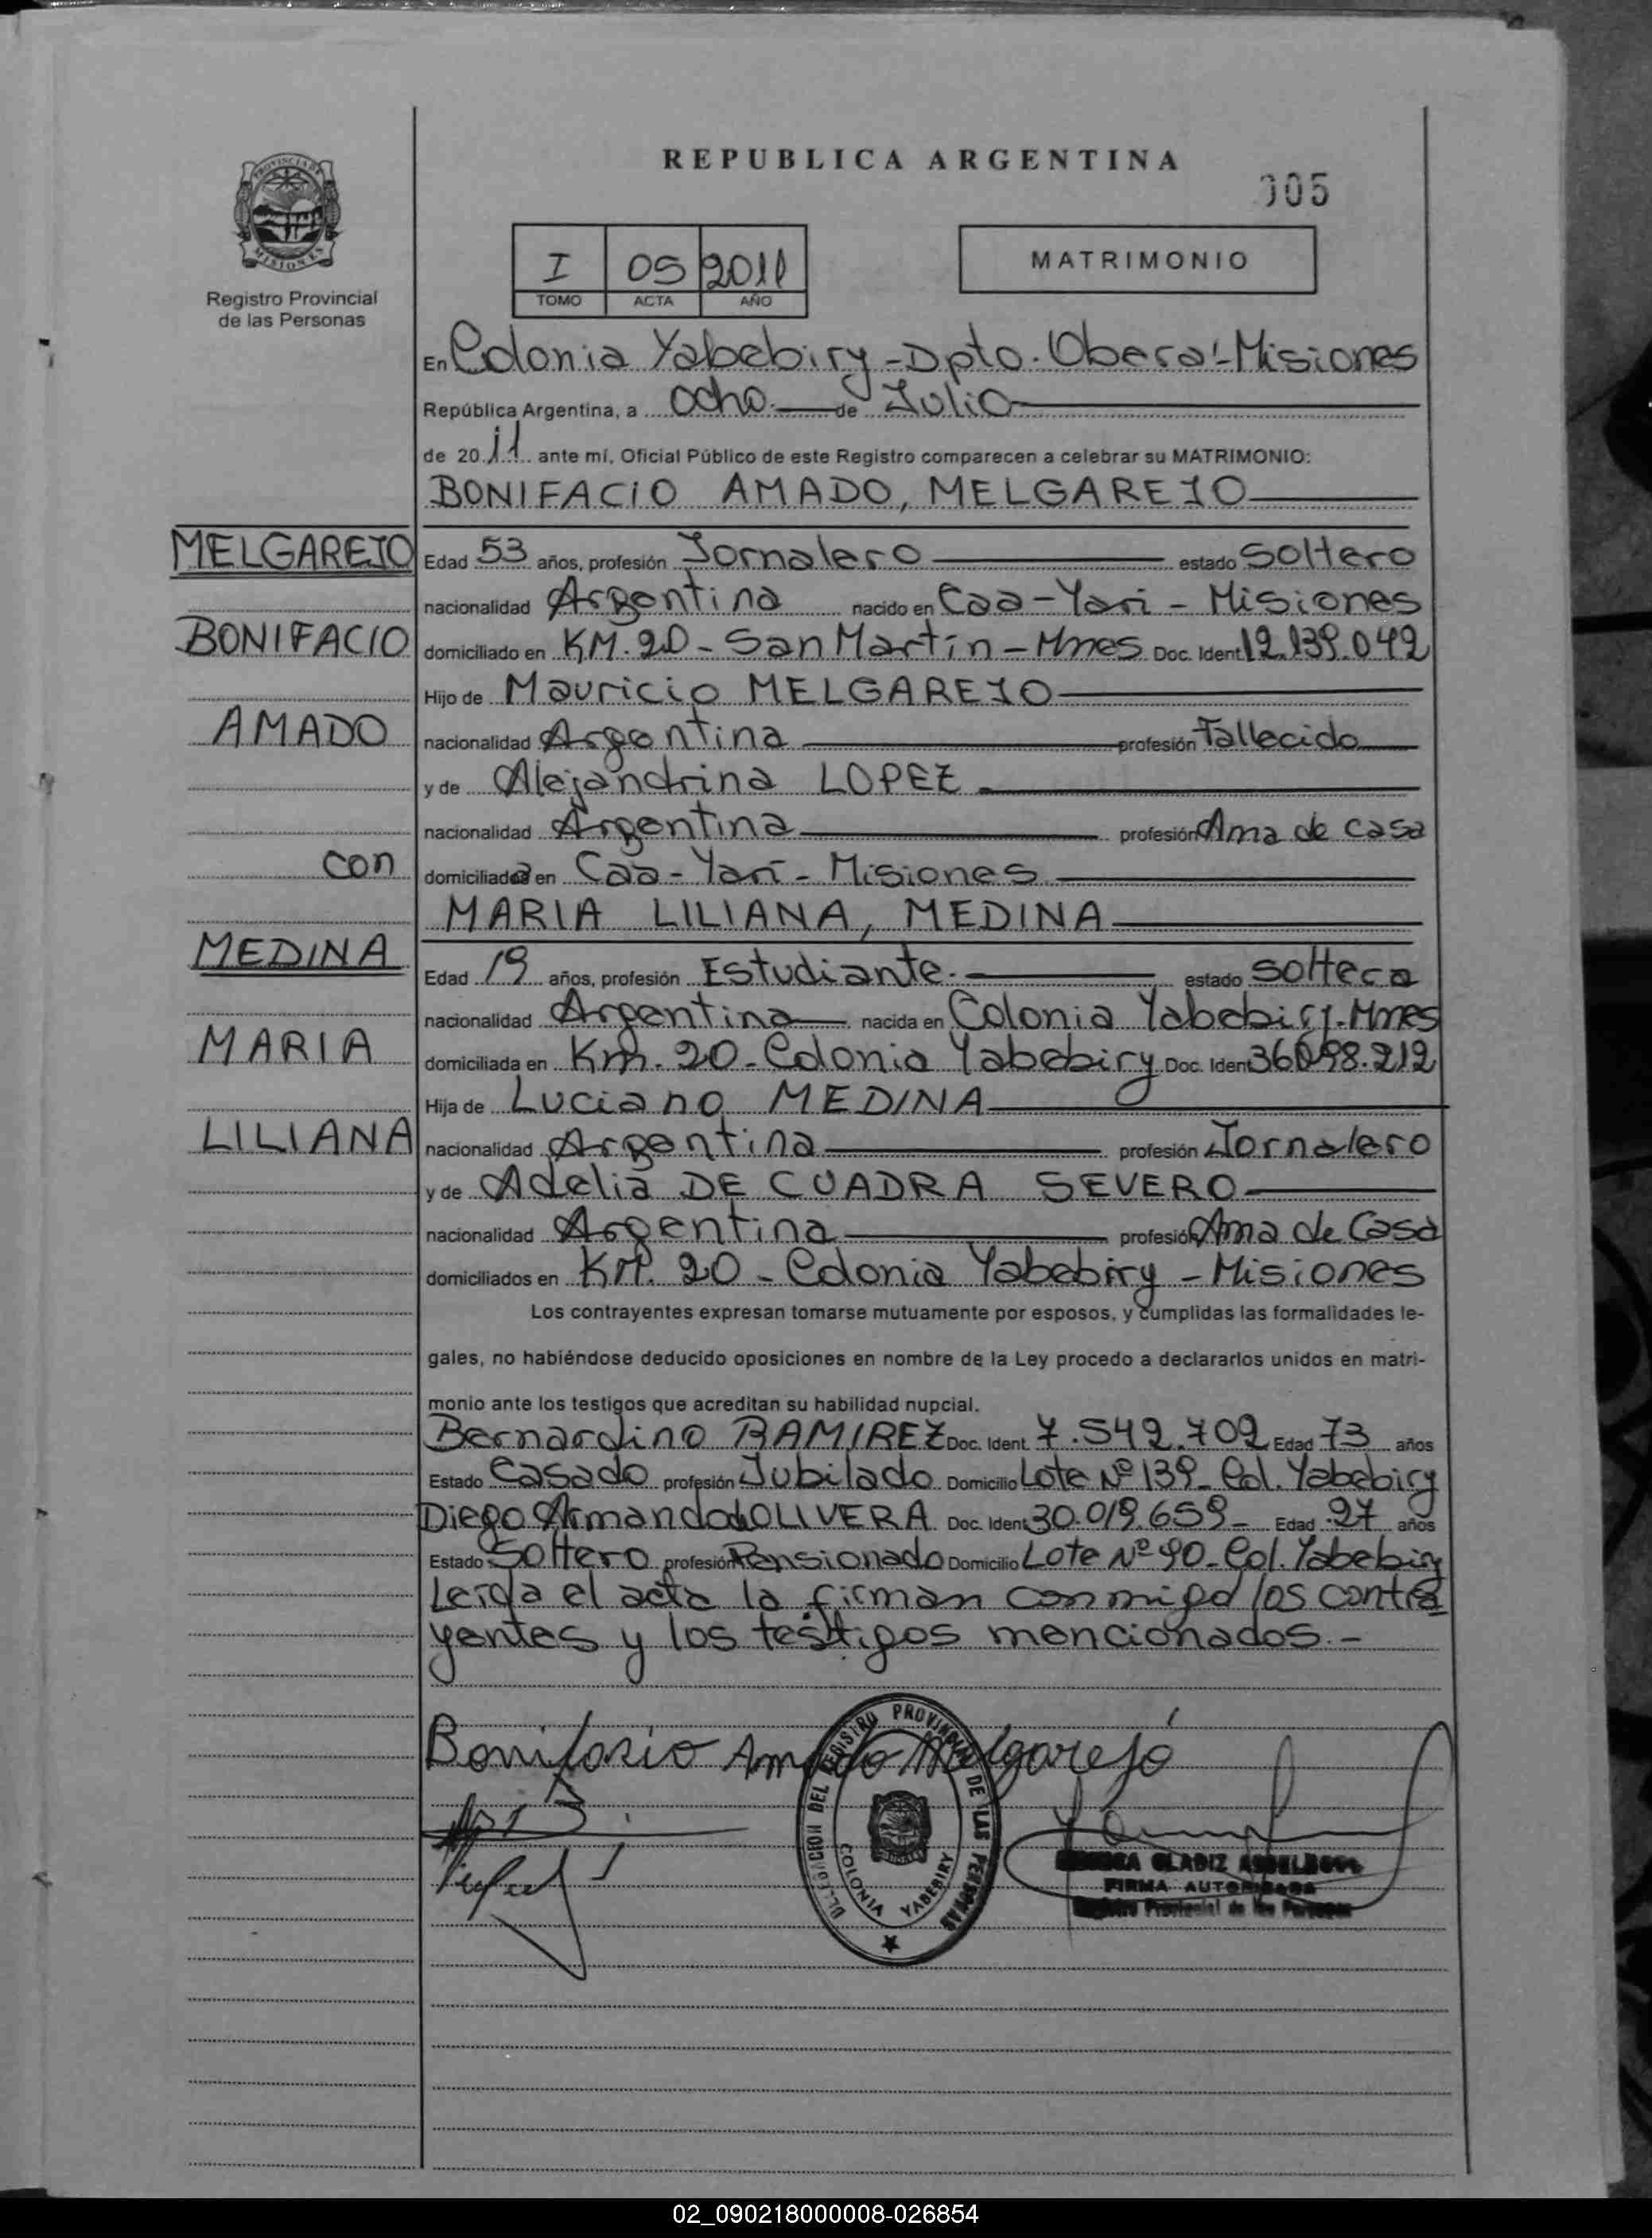 REPUBLICA ARGENTINA
005
PROVINCIA DE MISIONES
Registro Provincial
de las Personas
I 05 2011
TOMO ACTA AÑO
MATRIMONIO
En Colonia Yabebiry-Dpto. Obera'-Misiones
República Argentina, a ocho de Julio
de 2011 ante mí, Oficial Público de este Registro comparecen a celebrar su MATRIMONIO:
BONIFACIO AMADO, MELGAREJO
MELGAREJO
Edad 53 años, profesión Jornalero estado Soltero
nacionalidad Argentina nacido en Caa-Yari - Misiones
BONIFACIO
domiciliado en KM. 20 - San Martín - Mnes Doc. Ident 12.139.042
Hijo de Mauricio MELGAREJO
AMADO
nacionalidad Argentina profesión Fallecido
y de Alejandrina LOPEZ
nacionalidad Argentina profesión Ama de casa
con
domiciliada en Caa-Yarí - Misiones
MARIA LILIANA, MEDINA
MEDINA
Edad 19 años, profesión Estudiante. estado soltera
nacionalidad Argentina nacida en Colonia Yabebiry-Mnes
MARIA
domiciliada en Km. 20 - Colonia Yabebiry Doc. Ident 36.098.212
Hija de Luciano MEDINA
LILIANA
nacionalidad Argentina profesión Jornalero
y de Adelia DE CUADRA SEVERO
nacionalidad Argentina profesión Ama de Casa
domiciliados en KM. 20 - Colonia Yabebiry - Misiones
Los contrayentes expresan tomarse mutuamente por esposos, y cumplidas las formalidades le-
gales, no habiéndose deducido oposiciones en nombre de la Ley procedo a declararlos unidos en matri-
monio ante los testigos que acreditan su habilidad nupcial.
Bernardino RAMIREZ Doc. Ident. 7.542.702 Edad 73 años
Estado Casado profesión Jubilado Domicilio Lote Nº 139 - Col. Yabebiry
Diego Armando OLIVERA Doc. Ident 30.019.659 - Edad 27 años
Estado Soltero profesión Pensionado Domicilio Lote Nº 90 - Col. Yabebiry
Leída el acta la firman conmigo los contra
yentes y los testigos mencionados.-
Bonifasio Amado Melgarejo
DELEGACION DEL REGISTRO PROVINCIAL DE LAS PERSONAS
COLONIA YABEBIRY
GLADIZ
FIRMA AUTORIZADA
Registro Provincial de las Personas
02_090218000008-026854